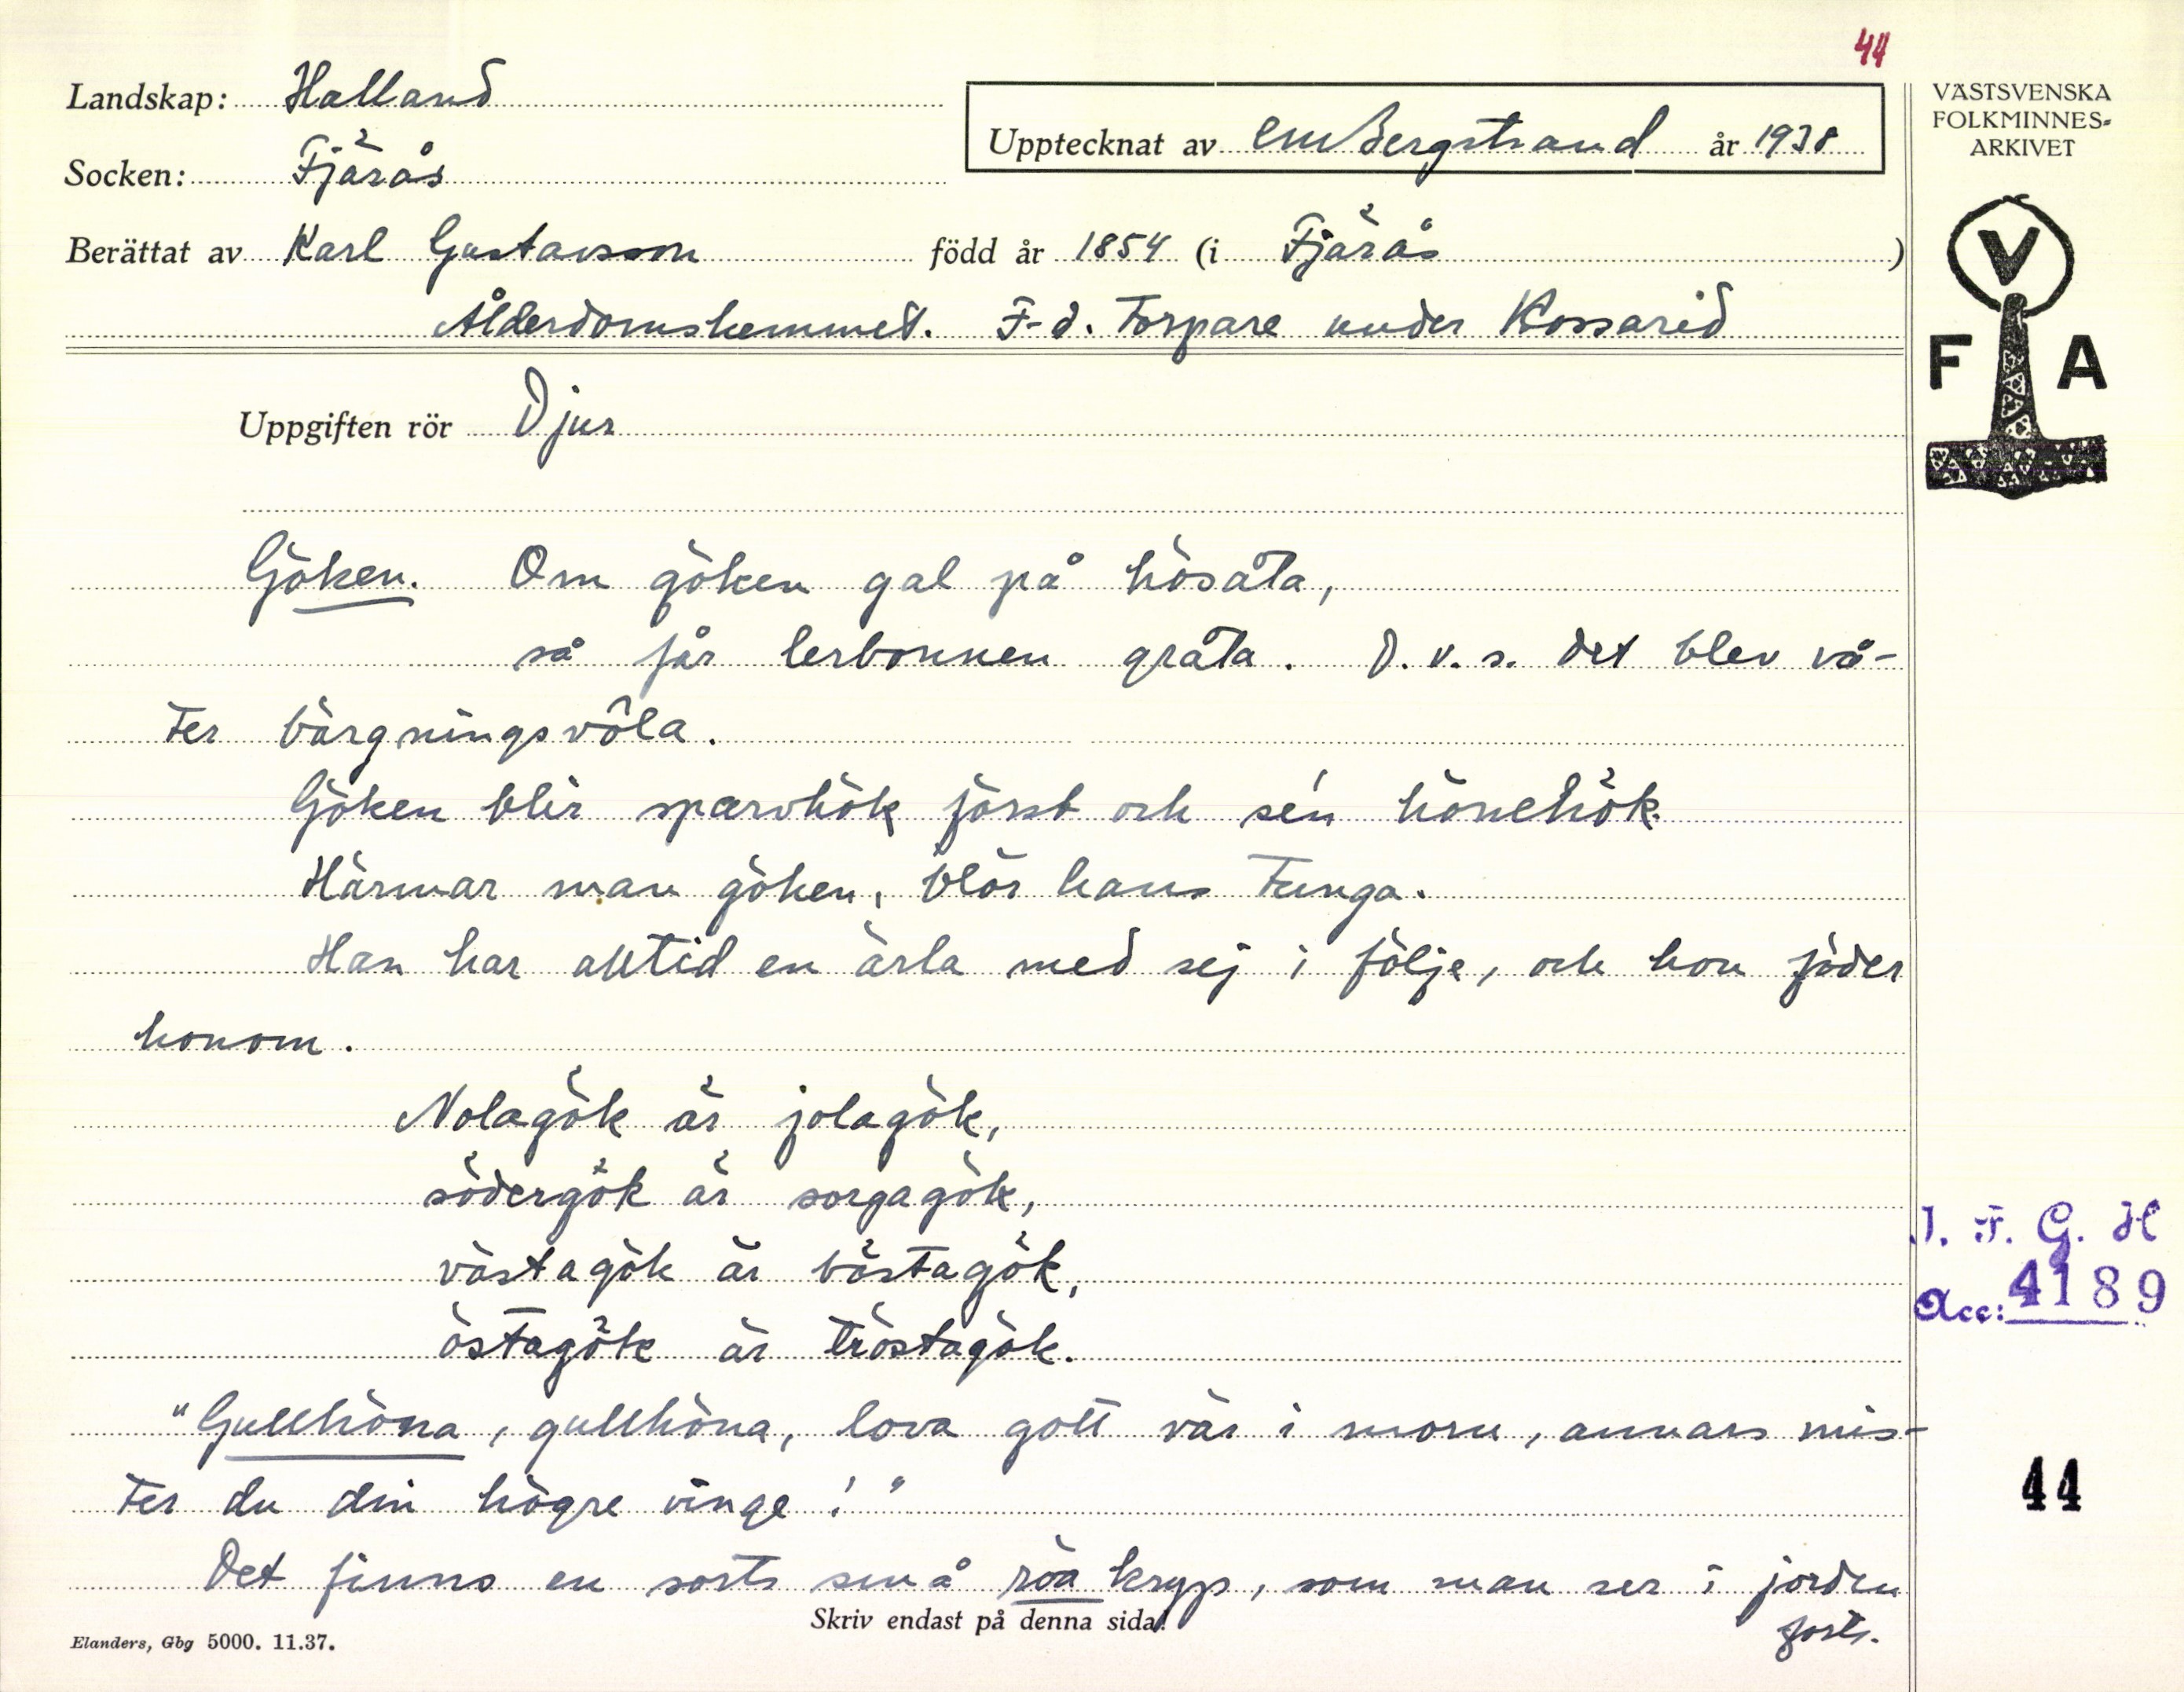 44
Landskap: Halland
Upptecknat av C.M. Bergstrand år 1938
Socken: Fjärås
Berättat av Karl Gustavsson född år 1854 (i Fjärås)
Ålderdomshemmet. F.d. Torpare under Kossarid
Uppgiften rör Djur
Göken. Om göken gal på hösåta,
så får lerbonnen gråta. D.v.s. det blev vå-
ter bärgningsvôla.
Göken blir sparvhök först och sé'n hönehök.
Härmar man göken, blör hans tunga.
Han har alltid en ärla med sej i följe, och hon föder
honom.
Nolagök är jolagök,
södergök är sorgagök,
västagök är bästagök,
östagök är tröstagök.
"Gullhöna, gullhöna, lova gott vär i morn, annars mis-
ter du din högre vinge!"
Det finns en sorts små röa kryp, som man ser i jorden
forts.
Skriv endast på denna sida!
Elanders, Gbg 5000. 11.37.
VÄSTSVENSKA
FOLKMINNES-
ARKIVET
V
F A
I. F. G. H
Acc: 4189
44